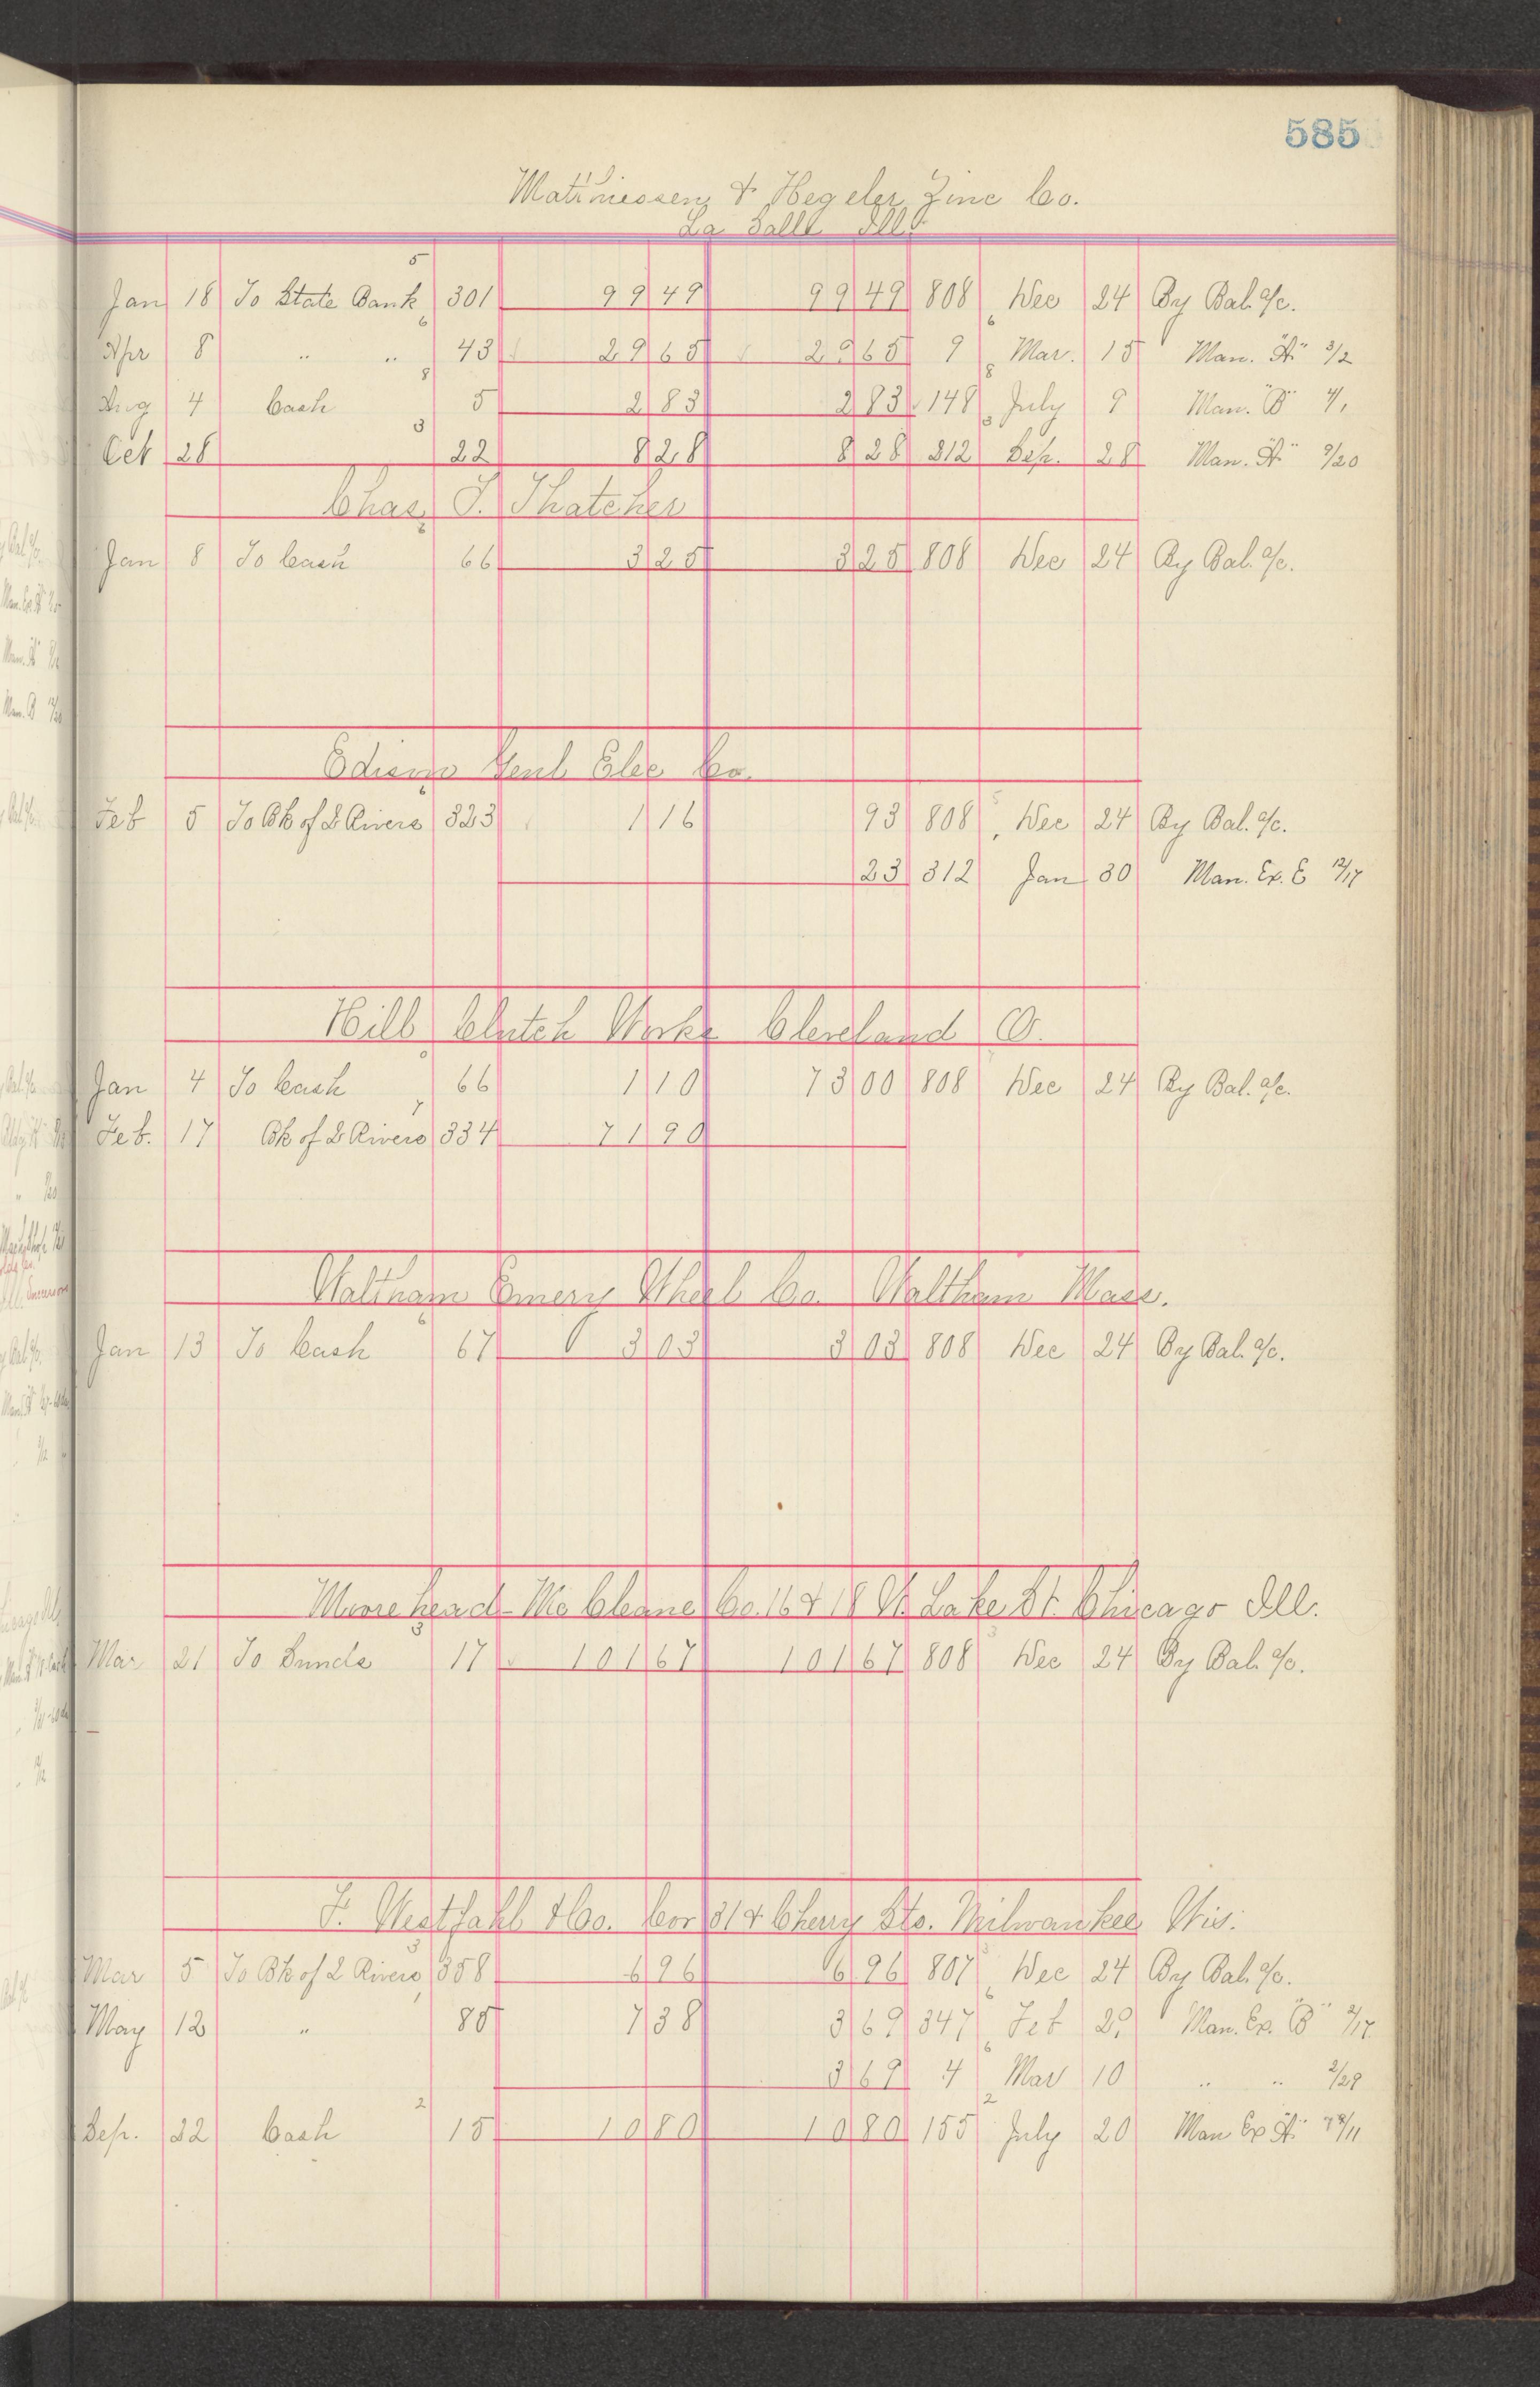 585
Matthiessen & Hegeler Zinc Co.
La Salle Ills
5
Jan 18 To State Bank 301 99 49 99 49 808 Dec 24 By Bal. a/c.
6 6
Apr 8 " " 43 29 65 29 65 9 Mar. 15 Man. "A" 3/2
8 8
Aug 4 Cash 5 2 83 2 83 148 July 9 Man. "B" 7/1
3 3
Oct 28 22 8 28 8 28 212 Sep. 28 Man. "A" 9/20
Chas. T. Thatcher
6
Jan 8 To Cash 66 3 25 3 25 808 Dec 24 By Bal. a/c.
Edison Genl Elec Co.
6 5
Feb 5 To Bk of 2 Rivers 323 1 16 93 808 Dec 24 By Bal. a/c.
23 312 Jan 30 Man. Ex. E 12/17
Hill Clutch Works Cleveland O.
6
Jan 4 To Cash 66 1 10 73 00 808 Dec 24 By Bal. a/c.
7
Feb. 17 Bk of 2 Rivers 334 71 90
Waltham Emery Wheel Co. Waltham Mass.
6
Jan 13 To Cash 67 3 03 3 03 808 Dec 24 By Bal. a/c.
Moorehead-McCleane Co. 16 & 18 W. Lake St. Chicago Ill.
3 3
Mar 21 To Sunds 17 101 67 101 67 808 Dec 24 By Bal. a/c.
F. Westfahl & Co. Cor 31 & Cherry Sts. Milwaukee Wis.
3
Mar 5 To Bk of 2 Rivers 358 6 96 6 96 807 Dec 24 By Bal. a/c.
6
May 12 " 85 7 38 3 69 347 Feb 29 Man. Ex. "B" 2/17
6
3 69 4 Mar 10 " " 2/29
2 2
Sep. 22 Cash 15 10 80 10 80 155 July 20 Man Ex "A"